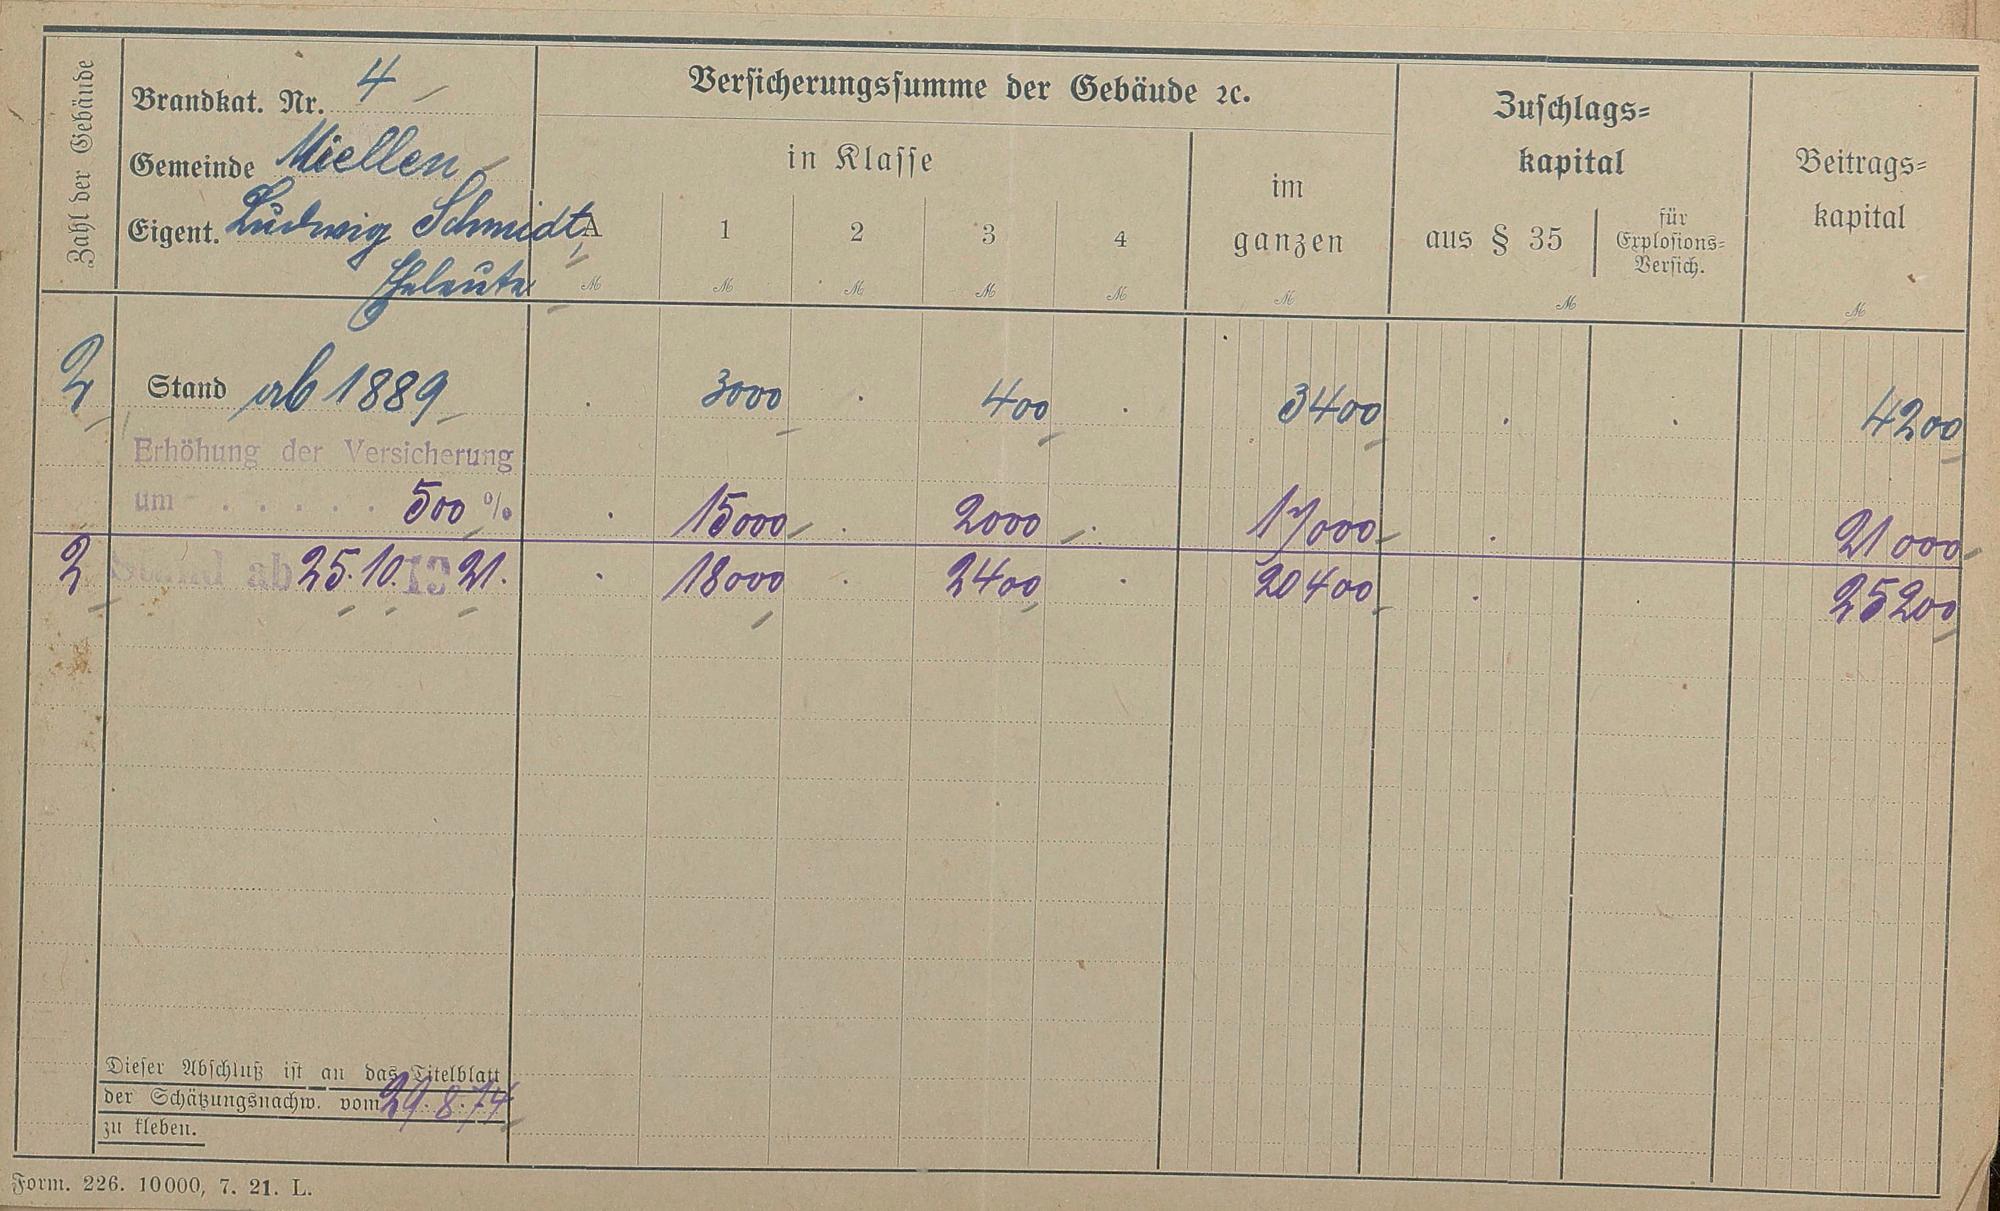 Zahl der Gebäude
Brandkat. Nr. 4
Gemeinde Miellen
Eigent. Ludwig Schmidt
Eheleute
Versicherungssumme der Gebäude ꝛc.
in Klasse
A 1 2 3 4
im
ganzen
Zuschlags=
kapital
aus § 35
für
Explosions=
Versich.
Beitrags=
kapital
ℳ ℳ ℳ ℳ ℳ ℳ ℳ ℳ
2 Stand ab 1889 . 3000 . 400 . 3400 . . 4200
Erhöhung der Versicherung
um . . . . . 500 % . 15000 . 2000 . 17000 . 21000
2 Stand ab 25.10.1921. . 18000 . 2400 . 20400 . . 25200
Dieser Abschluß ist an das Titelblatt
der Schätzungsnachw. vom 29.8.74
zu kleben.
Form. 226. 10000, 7. 21. L.